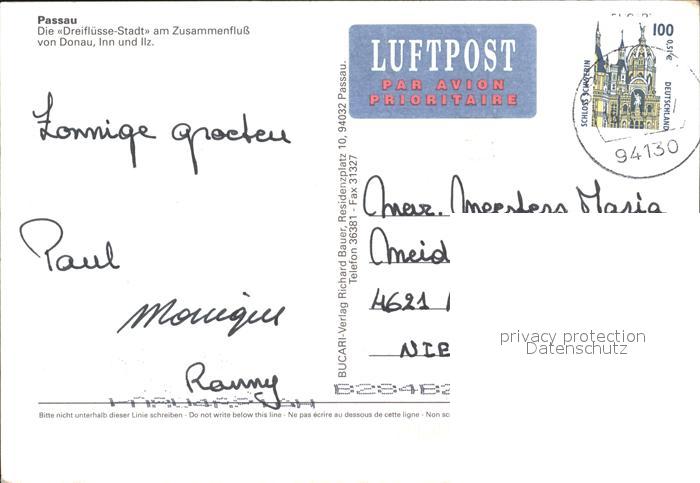 Passau
Die «Dreiflüsse-Stadt» am Zusammenfluß
von Donau, Inn und Ilz.
LUFTPOST
PAR AVION
PRIORITAIRE
100
0,51€
SCHLOSS SCHWERIN
DEUTSCHLAND
94130
Zonnige groeten
Paul
Monique
Ranny
BUCARI-Verlag Richard Bauer, Residenzplatz 10, 94032 Passau.
Telefon 36381 - Fax 31327
Mevr. Meertens Maria
Meid
4621
NIE
privacy protection
Datenschutz
Bitte nicht unterhalb dieser Linie schreiben - Do not write below this line - Ne pas écrire au dessous de cette ligne - Non sc